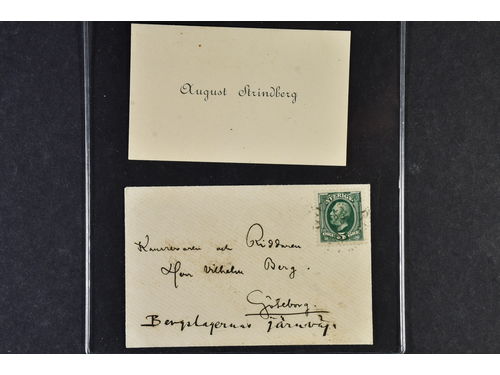 August Strindberg
SVERIGE
5
Kamreraren och Riddaren
Herr Vilhelm Berg.
Göteborg.
Bergslagernas Järnväg.